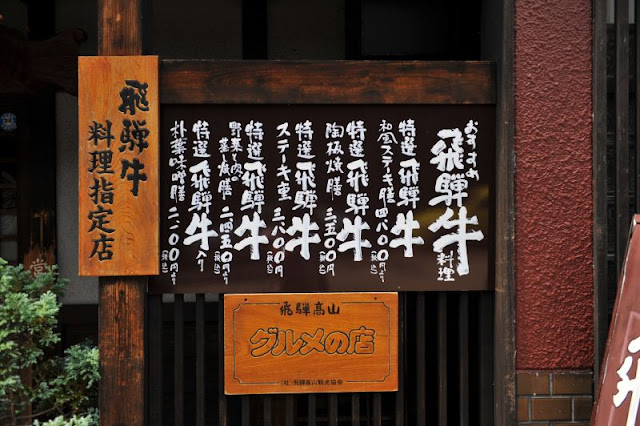 おすすめ
飛騨牛料理
特選飛騨牛
和風ステーキ膳 四八〇〇円より(税込)
特選飛騨牛
陶板焼膳 三五〇〇円より(税込)
特選飛騨牛
ステーキ重 三八〇〇円(税込)
特選飛騨牛
野菜と肉の
蒸し焼膳 二四五〇円より(税込)
特選飛騨牛入り
朴葉味噌膳 二一〇〇円より(税込)
飛騨牛
料理指定店
飛騨高山
グルメの店
(社)飛騨高山観光協会